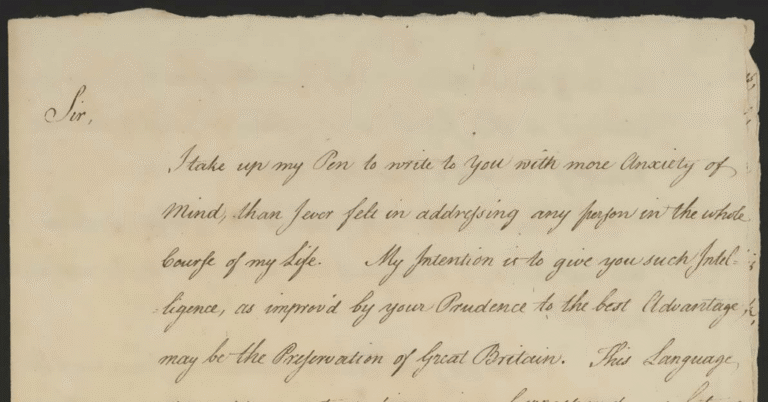 Sir,
I take up my Pen to write to You with more Anxiety of
Mind, than I ever felt in addreſsing any perſon in the whole
Courſe of my Life. My Intention is to give you such Intel-
-ligence, as improv'd by your Prudence to the best Advantage,
may be the Preſervation of Great Britain. This Language